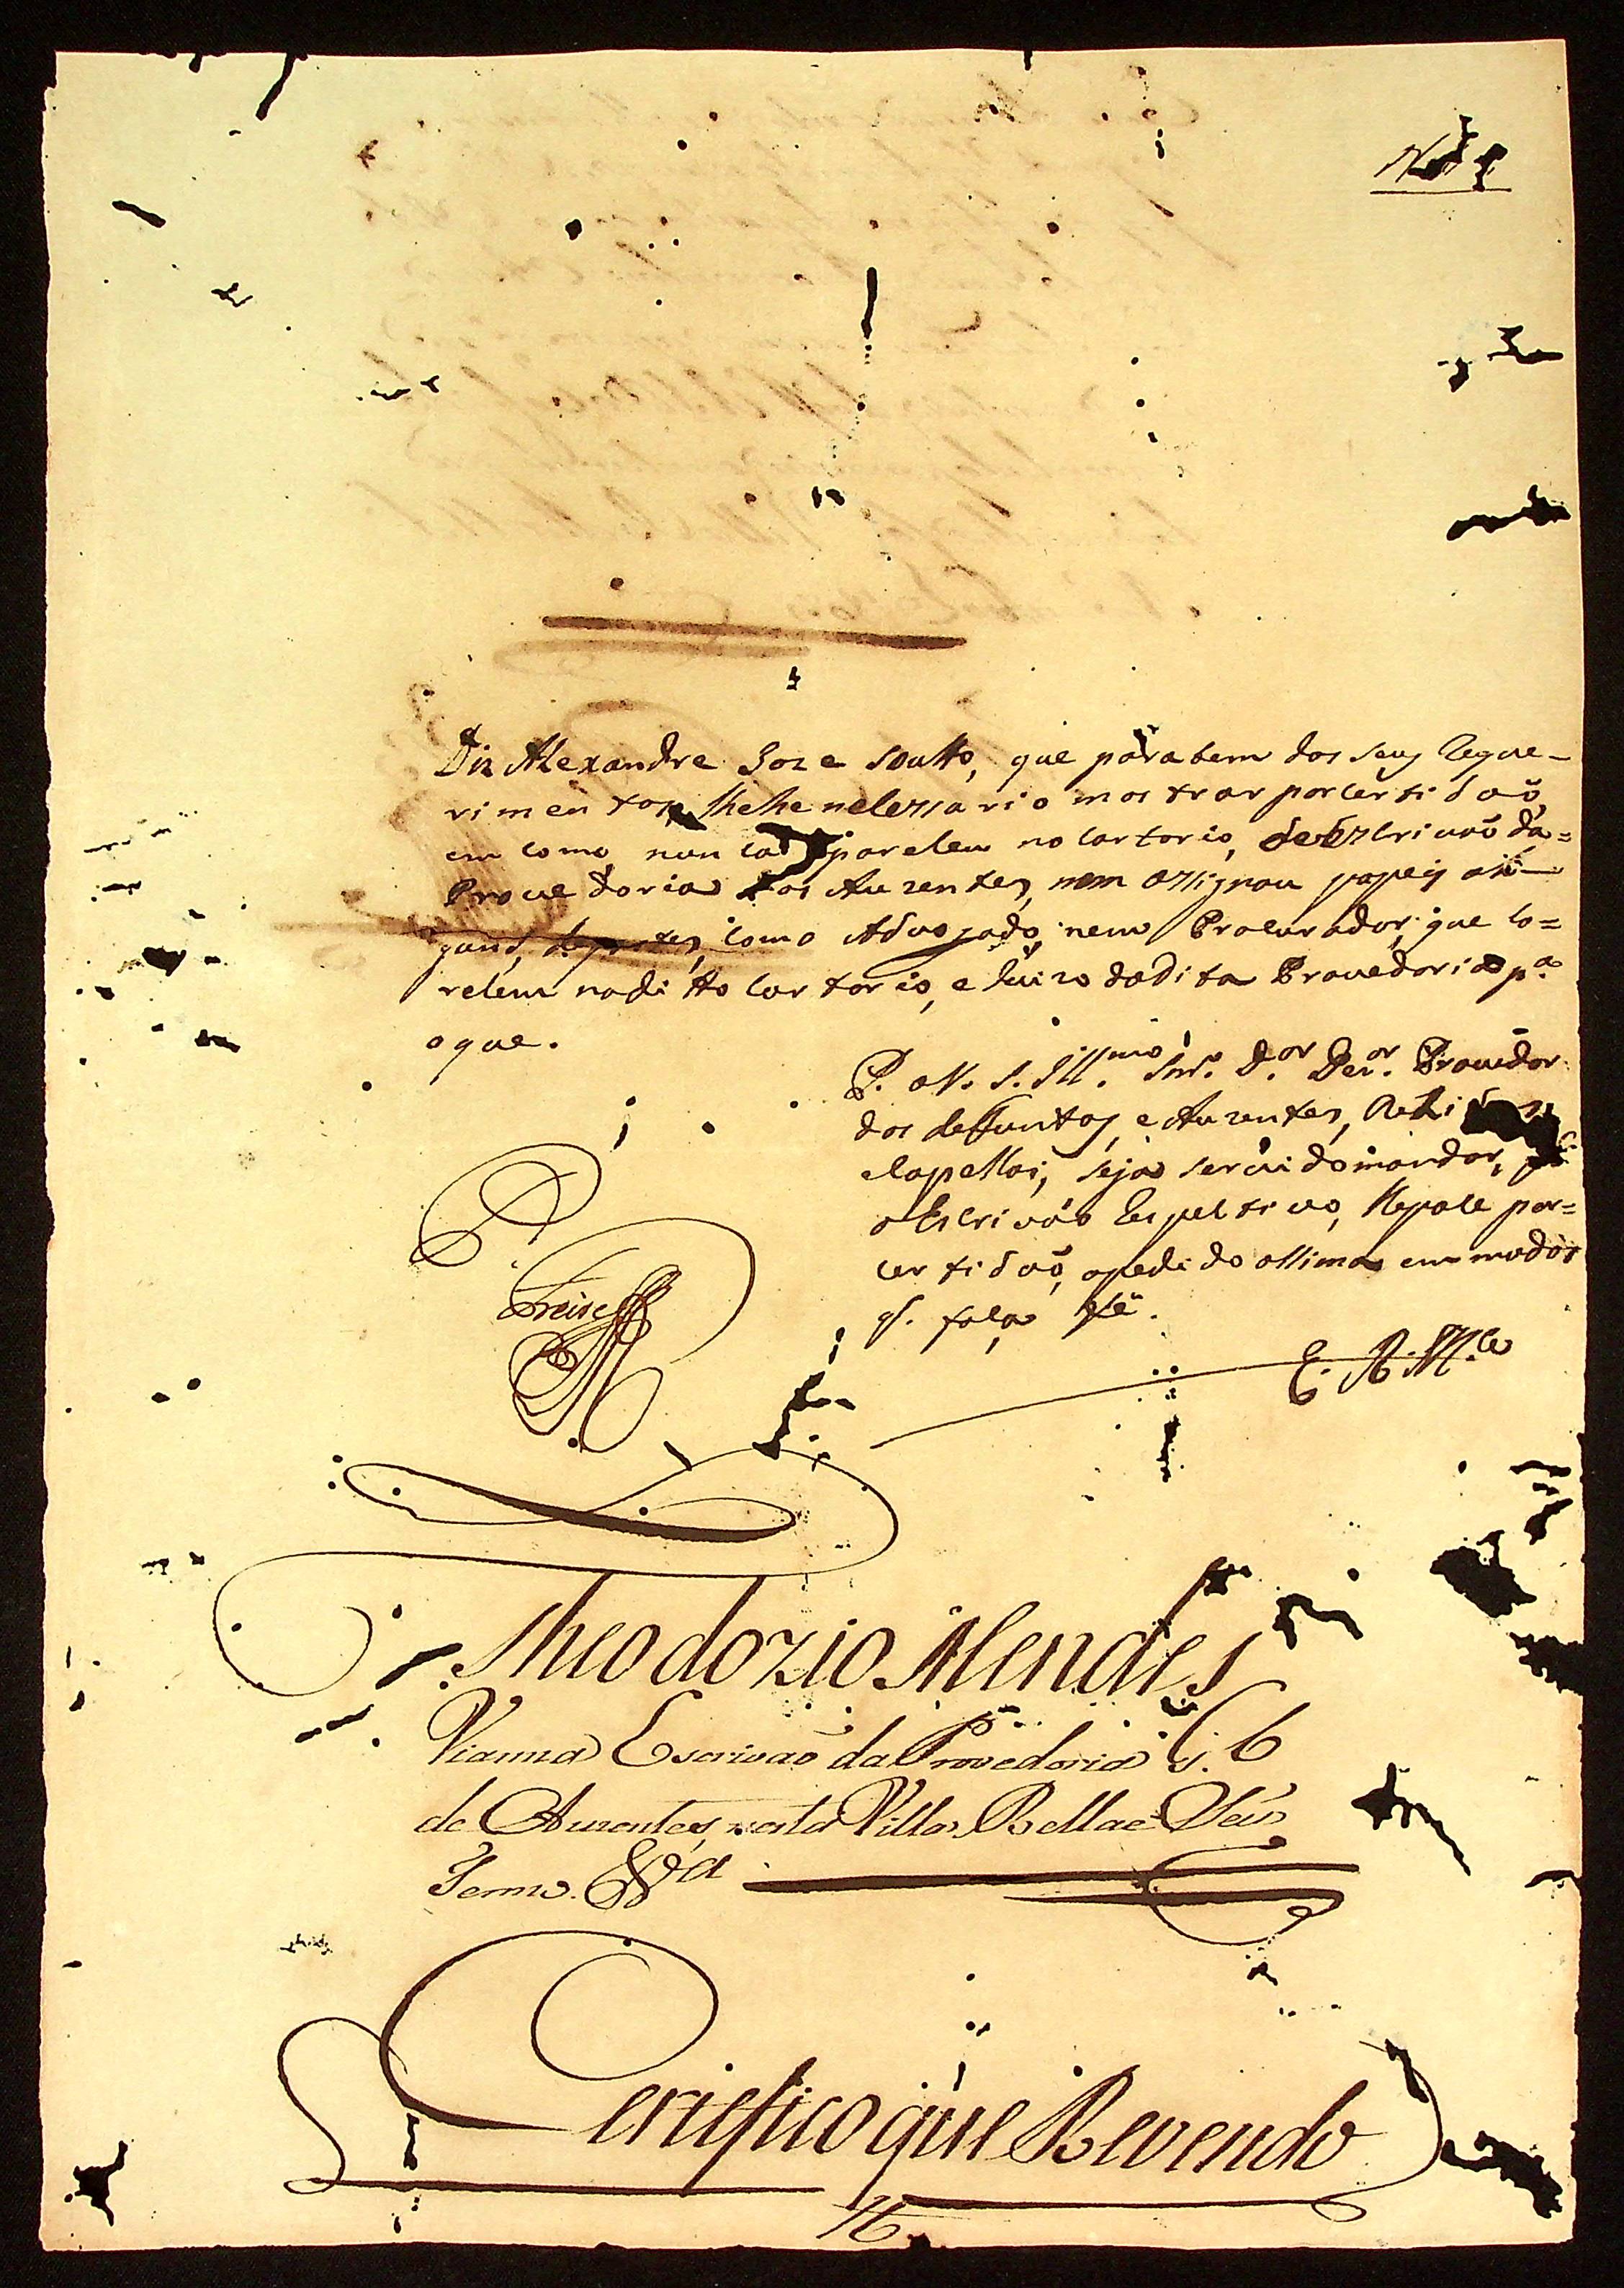 Diz Alexandre Joze Soutto, que para bem dos seus Reque-
rimentos, lhe he necessario mostrar por certidaõ,
em como nunca apareceu no cartorio, do Escrivaõ da=
Provedoria dos Auzentes, nem assignou papeis
de partes, como Advogado, nem Procurador, que co=
rrem no dito Cartorio, e Juizo da dita Provedoria p.ª
o que.
P. a V. S. Ill.mo Snr. D.or Dez.or Provedor
dos defuntos, e Auzentes,
Capellas, seja servido mandar,
o Escrivaõ Respectivo, lhe passe por=
certidaõ, o pedido assima em modo
q. faça fé.
P.
Freire
E. R. M.ce
Theodozio Mendes
Vianna Escrivaõ da Provedoria
de Auzentes, nesta Villa Bella e Seu
Termo. &.ª
Certefico que Revendo